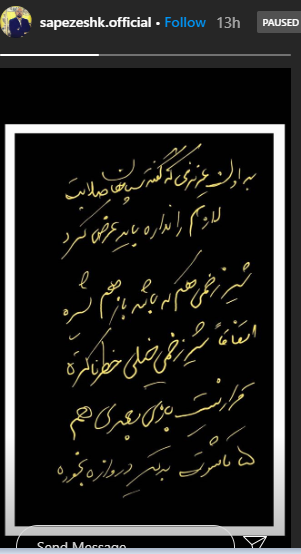 sapezeshk.official • Follow 13h PAUSED
به اون عزیزی که گفته سپاهان صلابت
لازم را نداره باید عرض کرد
شیر زخمی هم که باشه باز هم شیره
اتفاقاً شیر زخمی خیلی خطرناکتره
قرار نیست هم
شوت دروازه بخوره
Send Message